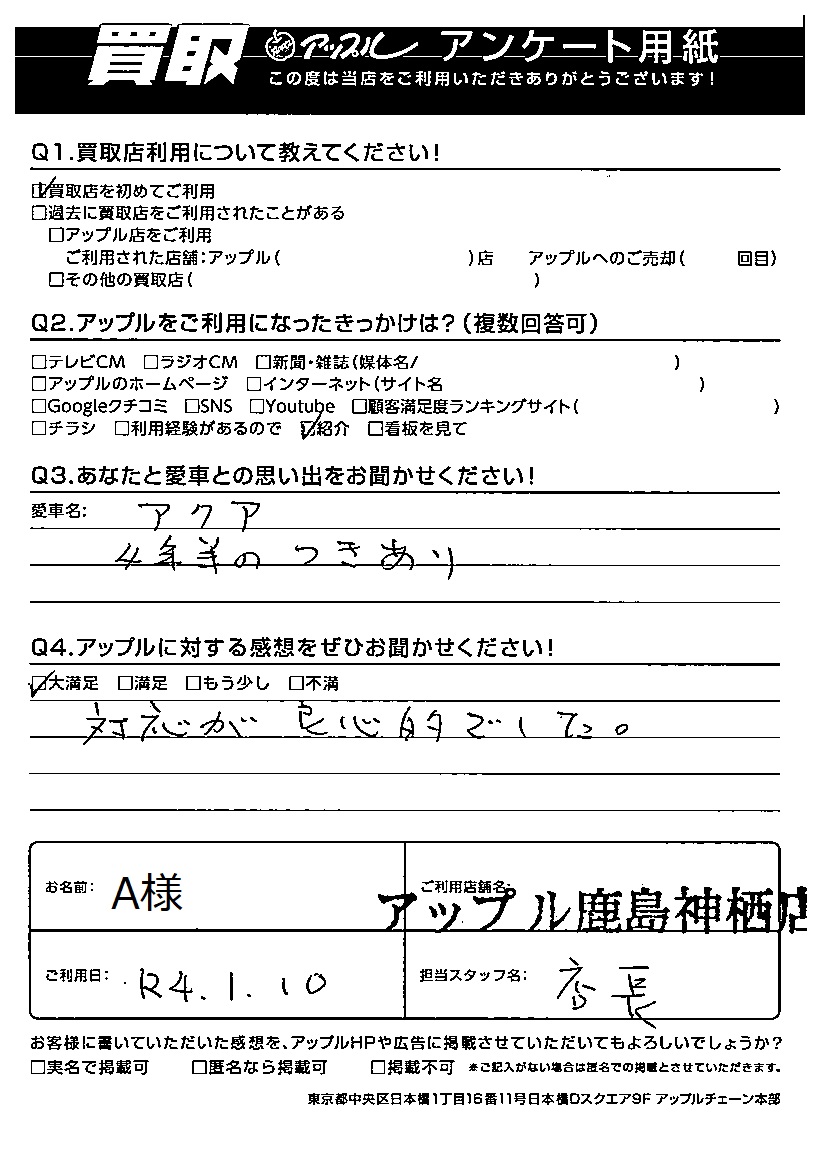 買取 アップル アンケート用紙
この度は当店をご利用いただきありがとうございます!
Q1.買取店利用について教えてください!
☑買取店を初めてご利用
□過去に買取店をご利用されたことがある
□アップル店をご利用
ご利用された店舗:アップル( )店 アップルへのご売却( 回目)
□その他の買取店( )
Q2.アップルをご利用になったきっかけは?(複数回答可)
□テレビCM □ラジオCM □新聞・雑誌(媒体名/ )
□アップルのホームページ □インターネット(サイト名 )
□Googleクチコミ □SNS □Youtube □顧客満足度ランキングサイト( )
□チラシ □利用経験があるので ☑紹介 □看板を見て
Q3.あなたと愛車との思い出をお聞かせください!
愛車名: アクア
4年半のつきあい
Q4.アップルに対する感想をぜひお聞かせください!
☑大満足 □満足 □もう少し □不満
対応が良心的でした。
お名前: A様
ご利用店舗名: アップル鹿島神栖店
ご利用日: R4.1.10
担当スタッフ名: 店長
お客様に書いていただいた感想を、アップルHPや広告に掲載させていただいてもよろしいでしょうか?
□実名で掲載可 □匿名なら掲載可 □掲載不可 ※ご記入がない場合は匿名での掲載とさせていただきます。
東京都中央区日本橋1丁目16番11号日本橋Dスクエア9F アップルチェーン本部